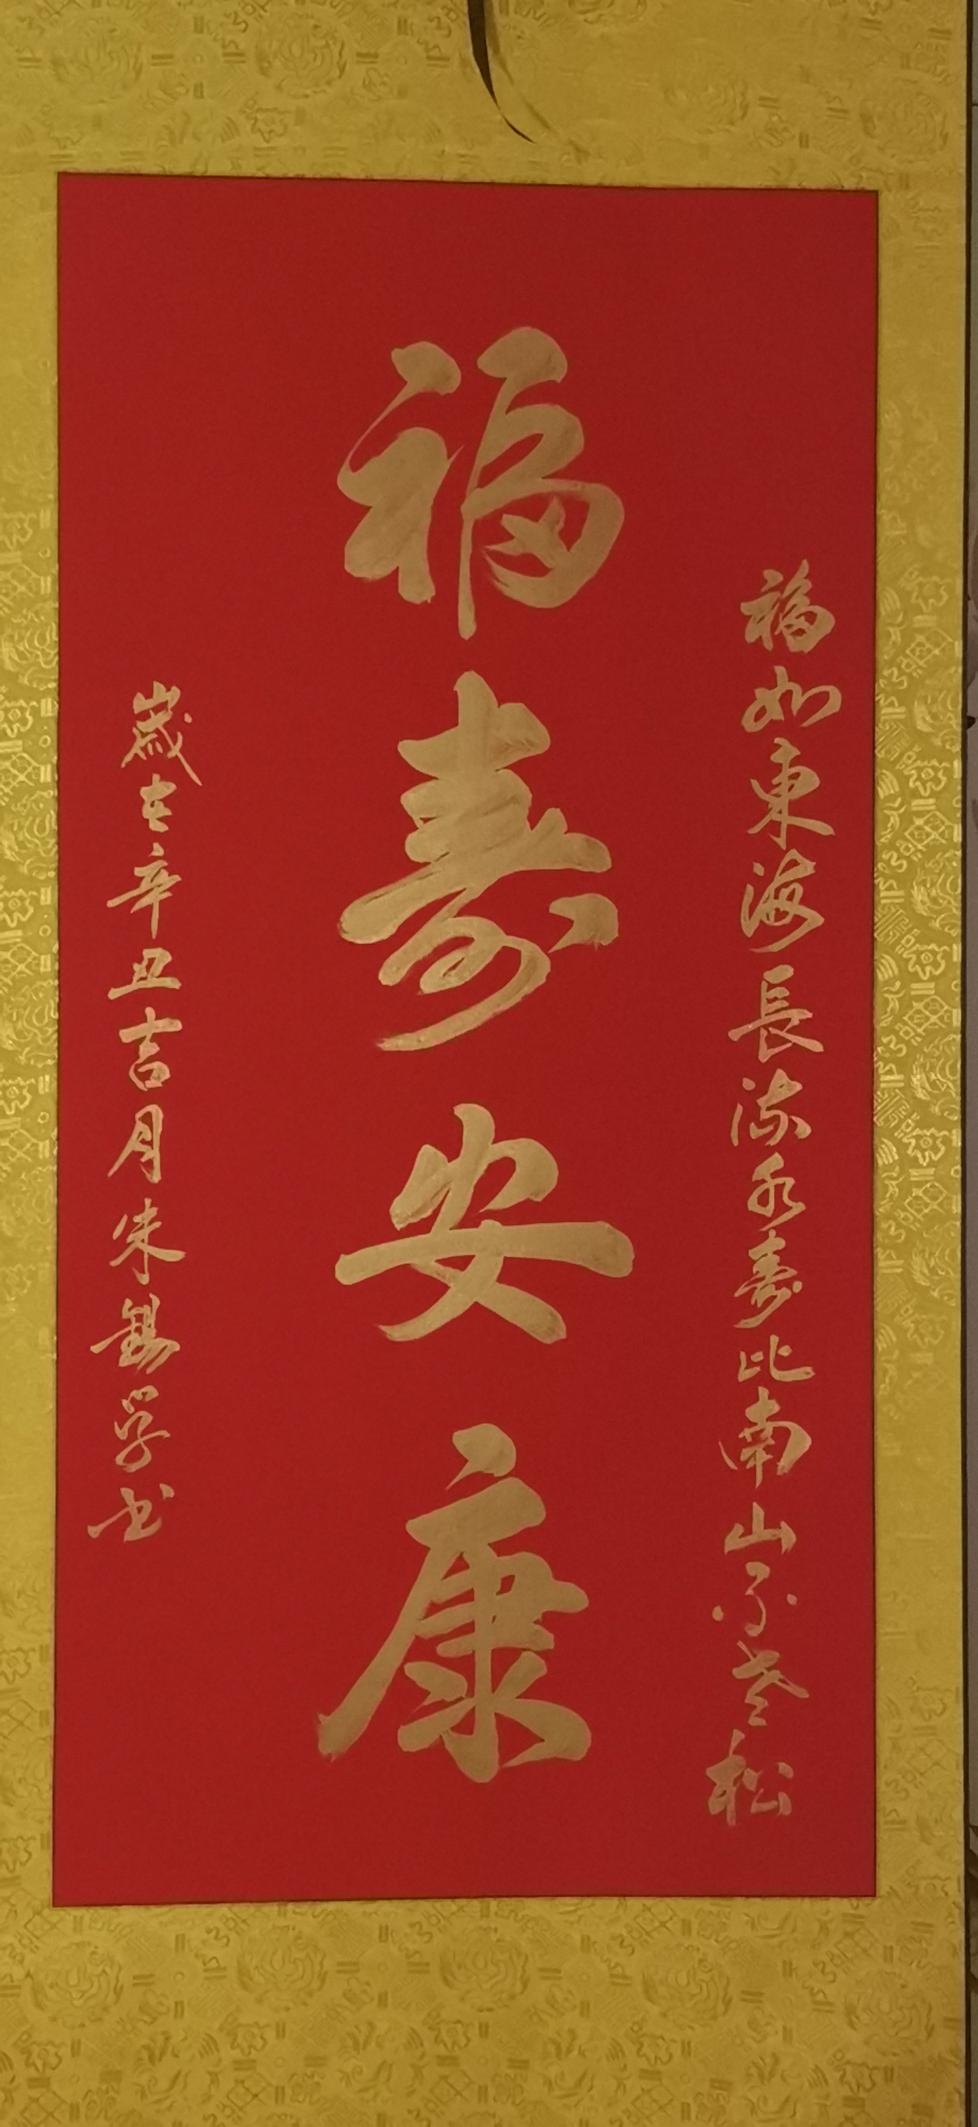 福如東海長流水壽比南山不老松
福壽安康
歲在辛丑吉月朱錫学书